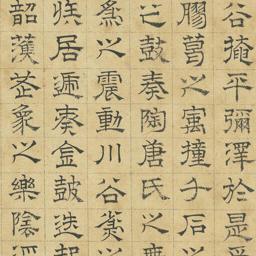 谷掩平彌澤於是乎
膠葛之寓撞千石之
之鼓奏陶唐氏之舞
為之震動川谷為之
族居遞奏金鼓迭起
韶濩武象之樂陰淫